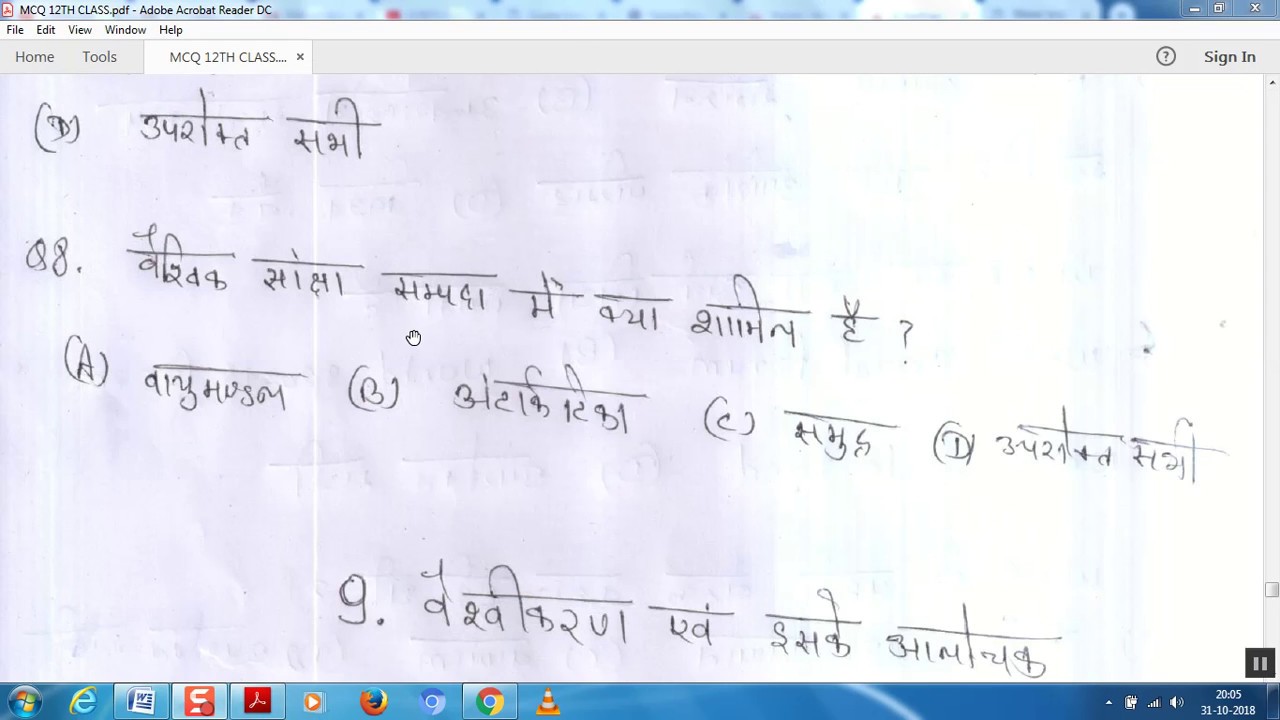 MCQ 12TH CLASS.pdf - Adobe Acrobat Reader DC
File Edit View Window Help
Home Tools MCQ 12TH CLASS.... × ? Sign In
(D) उपरोक्त सभी
Q8. वैश्विक सांक्षा सम्पदा में क्या शामिल है ?
(A) वायुमण्डल (B) अंटार्कटिका (C) समुद्र (D) उपरोक्त सभी
9. वैश्वीकरण एवं इसके आलोचक
20:05
31-10-2018